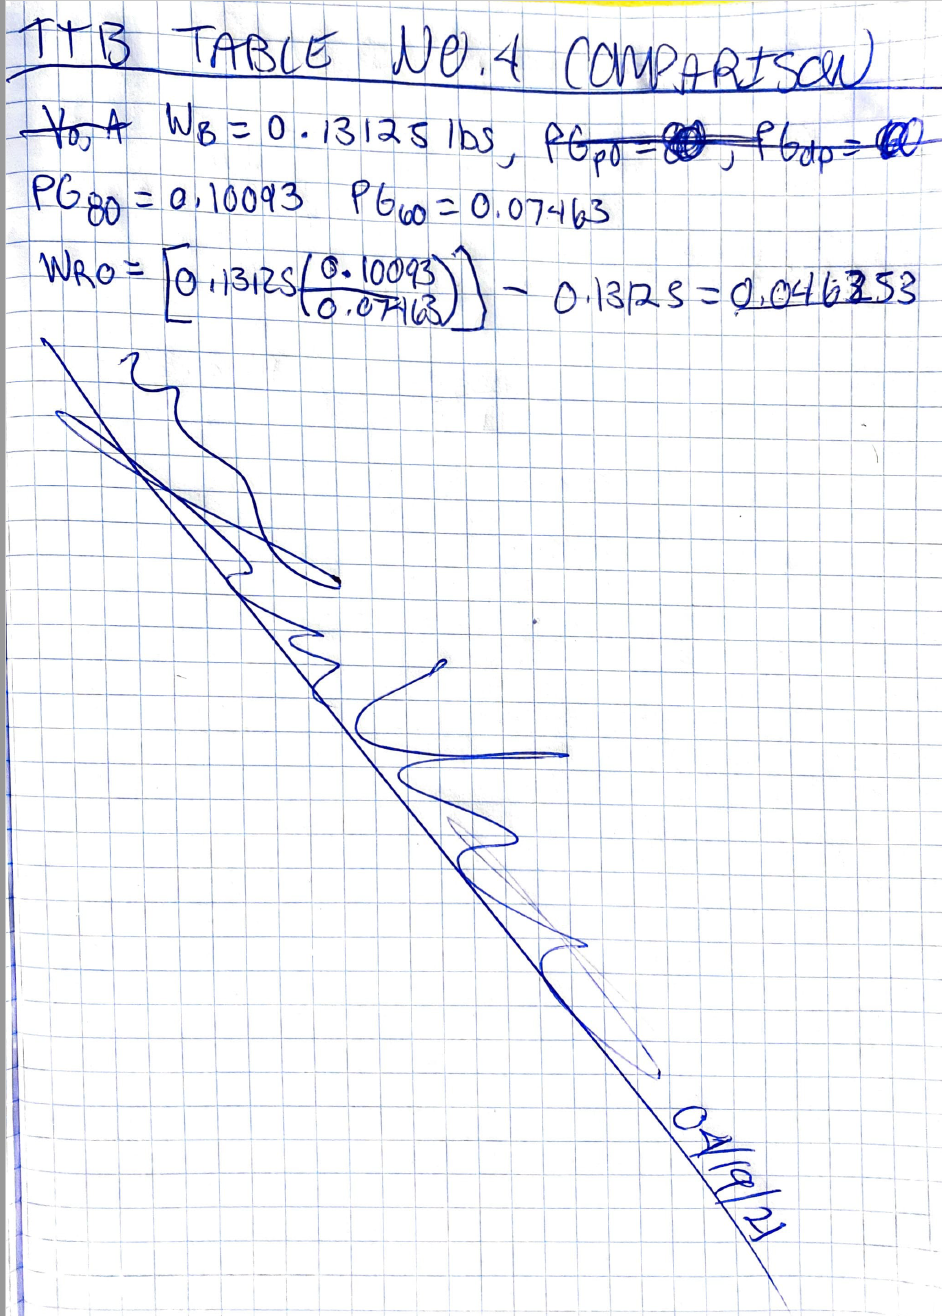 TTB TABLE NO.4 COMPARISON
WB = 0.13125 lbs, PGpo = , PGdp =
PG80 = 0.10093 PG60 = 0.07463
WRO = [0.13125(0.10093/0.07463)] - 0.13125 = 0.046253